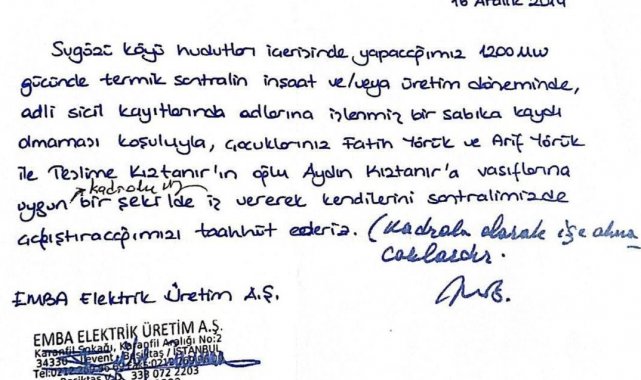 16 Aralık 2014
Sugözü köyü hudutları içerisinde yapacağımız 1200 MW
gücünde termik santralin inşaat ve/veya üretim döneminde,
adli sicil kayıtlarında adlarına işlenmiş bir sabıka kaydı
olmaması koşuluyla, çocuklarınız Fatih Yörük ve Arif Yörük
ile Teslime Kıztanır'ın oğlu Aydın Kıztanır'a vasıflarına
kadrolu
uygun bir şekilde iş vererek kendilerini santralimizde
çalıştıracağımızı taahhüt ederiz. (Kadrolu olarak işe alına
caklardır.
EMBA Elektrik Üretim A.Ş.
EMBA ELEKTRİK ÜRETİM A.Ş.
Karanfil Sokağı, Karanfil Aralığı No:2
34330 Levent Beşiktaş / İSTANBUL
Tel:0212
Beşiktaş V.D. 333 072 2203